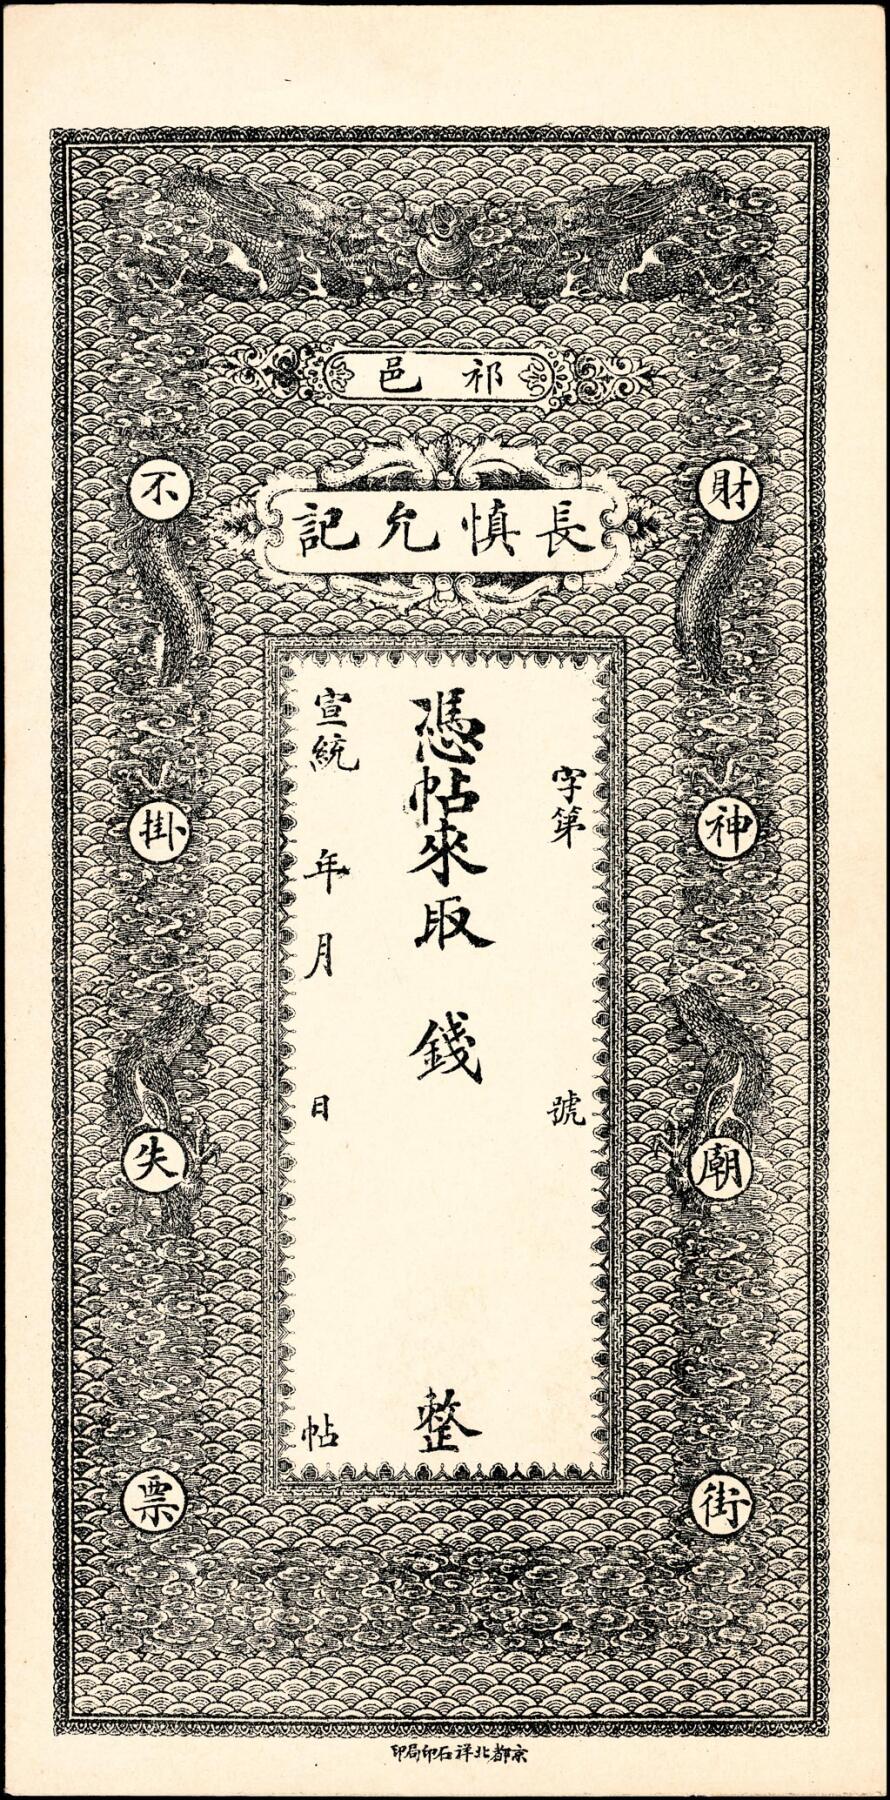 祁邑
長慎允記
財神廟街
不掛失票
字第號
憑帖來取錢整
宣統年月日帖
京都北祥石印局印